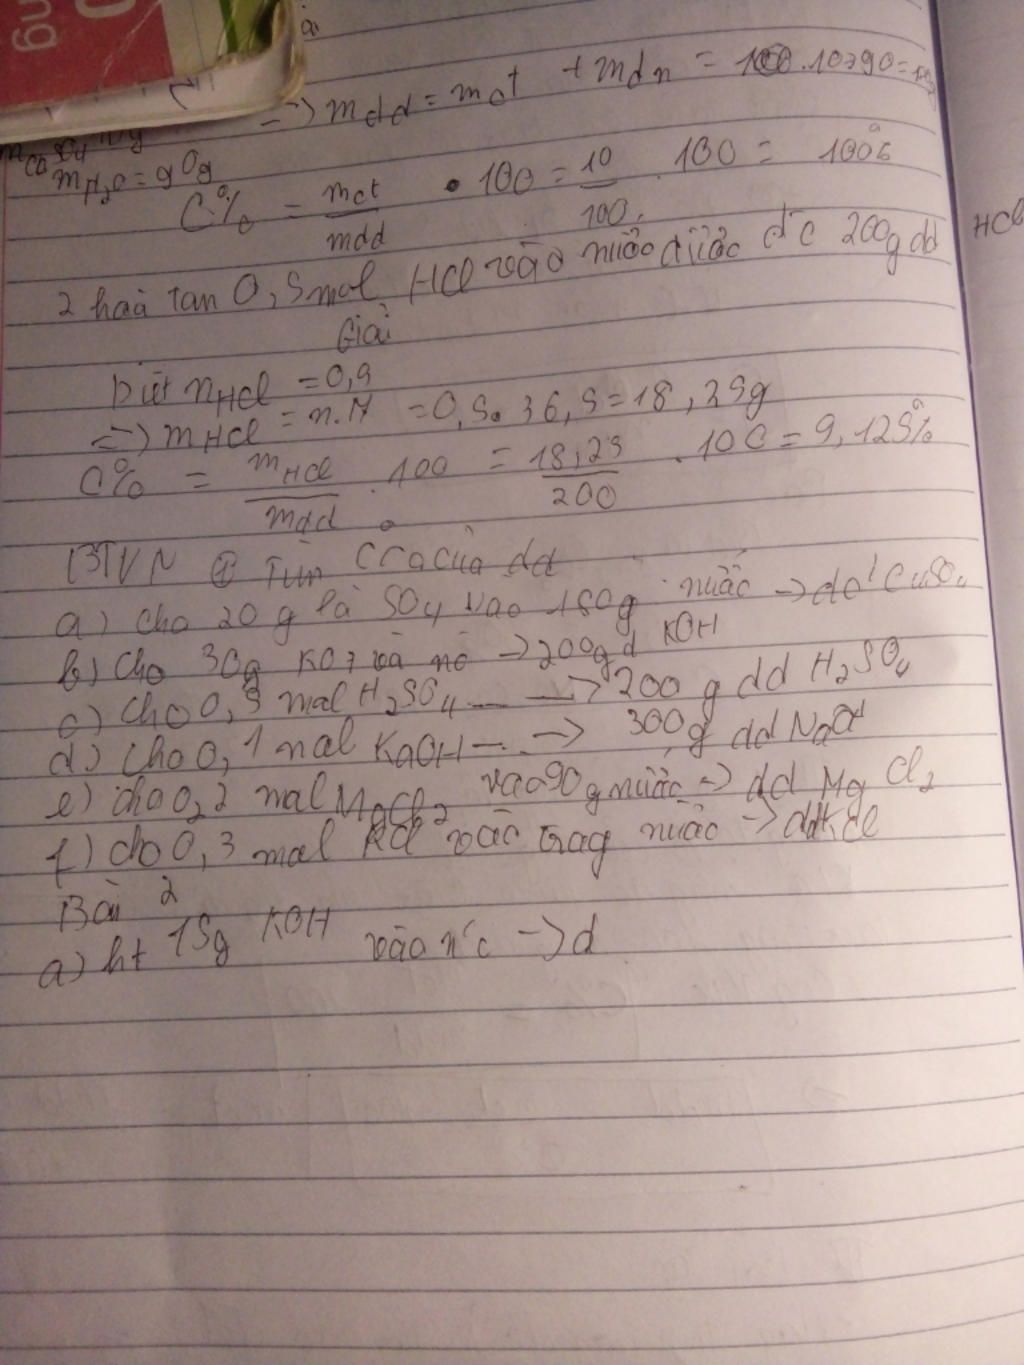 => mdd = mct + mdn = 100.10+90=
mCuSO4 10g
mH2O = 90g
C% = mct/mdd . 100 = 10/100 . 100 = 100%
HCl
2 hoà tan 0,5mol HCl vào nước được dc 200g dd
Giải
nHCl = 0,5
=> mHCl = n.M = 0,5. 36,5 = 18,25g
C% = mHCl/mdd . 100 = 18,25/200 . 100 = 9,125%
BTVN ① Tìm của dd
a) cho 20 g là SO4 vào 180g nước -> dd CuSO4
b) Cho 30g và -> 200g d KOH
c) Cho 0,5 mol H2SO4 -> 200 g dd H2SO4
d) Cho 0,1 mol -> 300g dd
e) cho 0,2 mol MgCl2 vào 90g nước -> dd MgCl2
f) cho 0,3 mol KCl vào trag nước -> dd KCl
Bài 2
a) ht 15g KOH vào n'c -> d